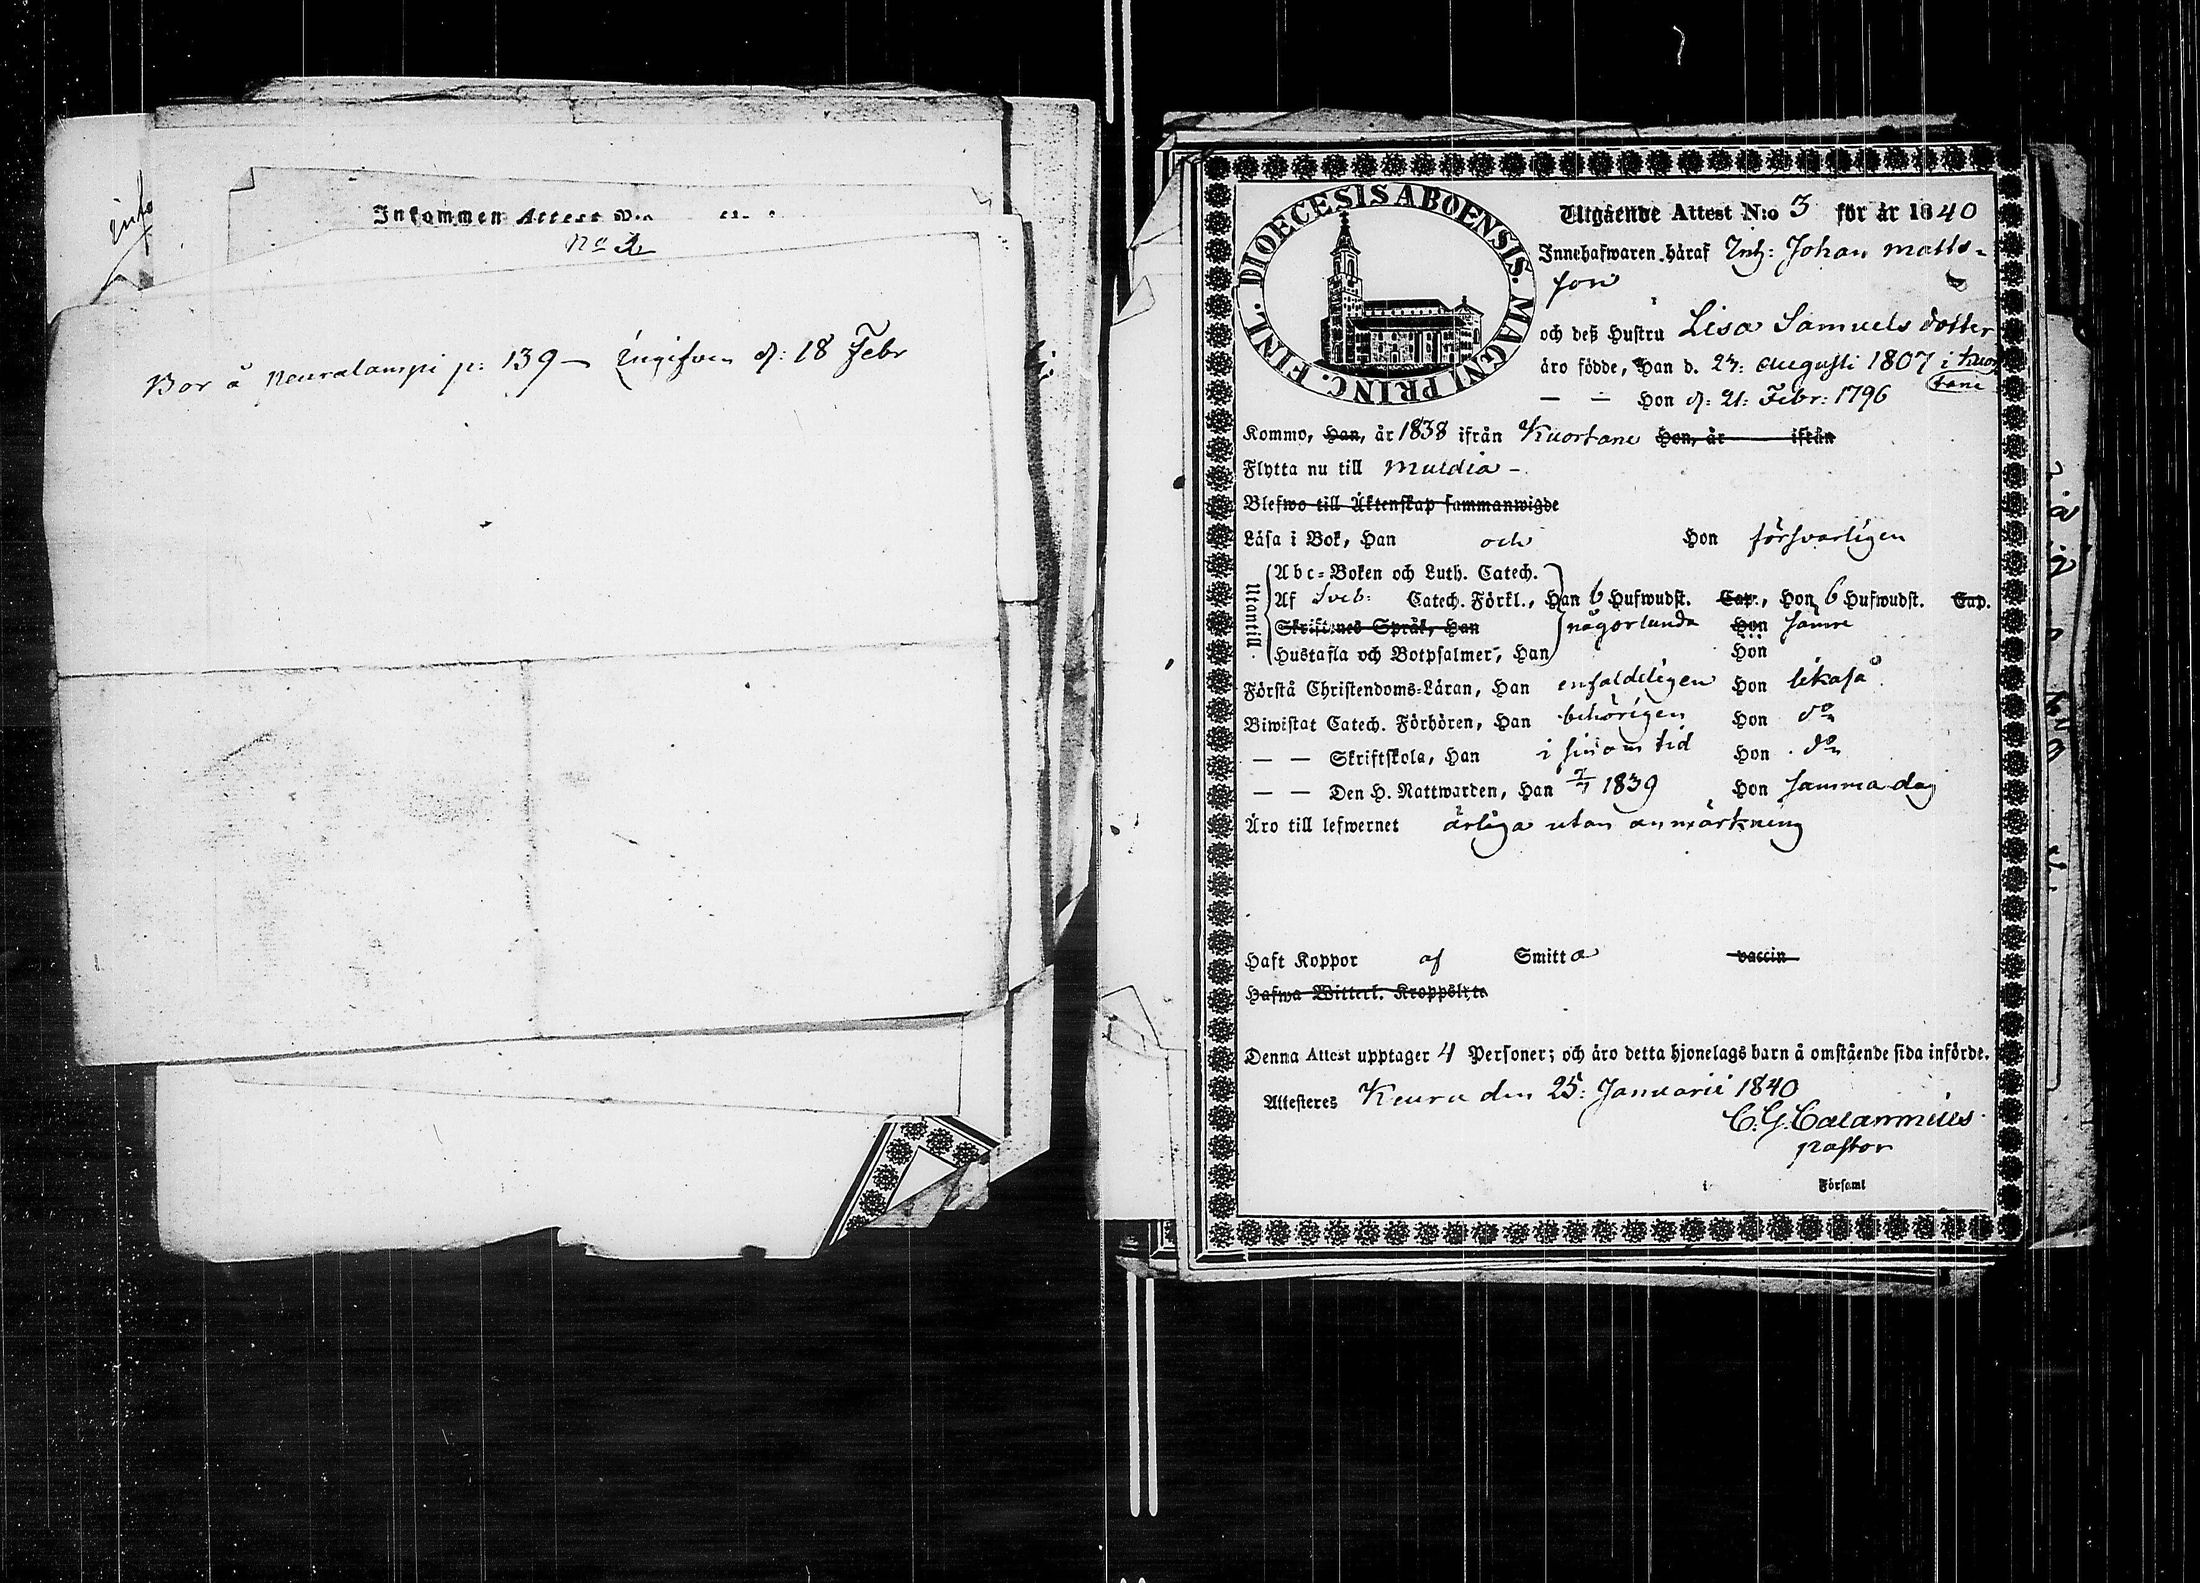 Inkommen Attest N:o
No 2
Bor å Neuralampi p: 139 — Ingifven d: 18 Febr
DIOECESIS ABOENSIS. MAGNI PRINC. FINL.
Utgående Attest N:o 3 för år 1840
Innehafwaren häraf Inh: Johan Matts-
son
och deß Hustru Lisa Samuels dotter
äro födde, Han d. 27: Augusti 1807 i Kuor
tane
— — Hon d: 21: Febr: 1796
Kommo, Han, år 1838 ifrån Kuortane Hon, år ifrån
Flytta nu till Muldia -
Blefwo till Äktenskap sammanwigde
Läsa i Bok, Han och Hon försvarligen
Utantill
Abc-Boken och Luth. Catech.
Af Sveb: Catech. Förkl., Han 6 Hufwudst. Cap., Hon 6 Hufwudst. Cap.
Skriftenes Språk, Han någorlunda Hon sämre
Hustafla och Botpsalmer, Han Hon
Förstå Christendoms-Läran, Han enfaldeligen Hon likaså
Biwistat Catech. Förhören, Han behörigen Hon do
— — Skriftskola, Han i sinom tid Hon do
— — Den H. Nattwarden, Han 7/7 1839 Hon samma dag
Äro till lefwernet ärliga utan anmärkning
Haft Koppor af Smitta vaccin
Hafwa Witterl. Kroppslyte
Denna Attest upptager 4 Personer; och äro detta hjonelags barn å omstående sida införde.
Attesteres Keuru den 25: Januarii 1840
C. G. Calamnius
pastor
i Församl